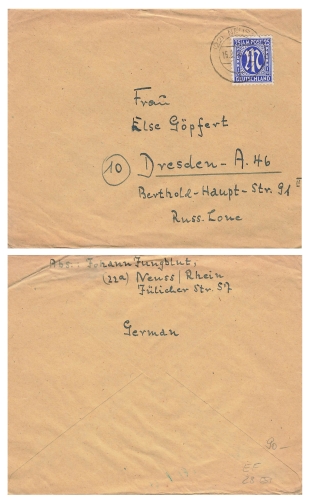 25 AM POST 25
M
DEUTSCHLAND
Frau
Else Göpfert
10 Dresden-A. 46
Berthold-Haupt-Str. 91 II
Russ. Zone
Abs.: Johann Jungblut,
(22a) Neuss/Rhein
Jülicher Str. 57
German
90-
EE